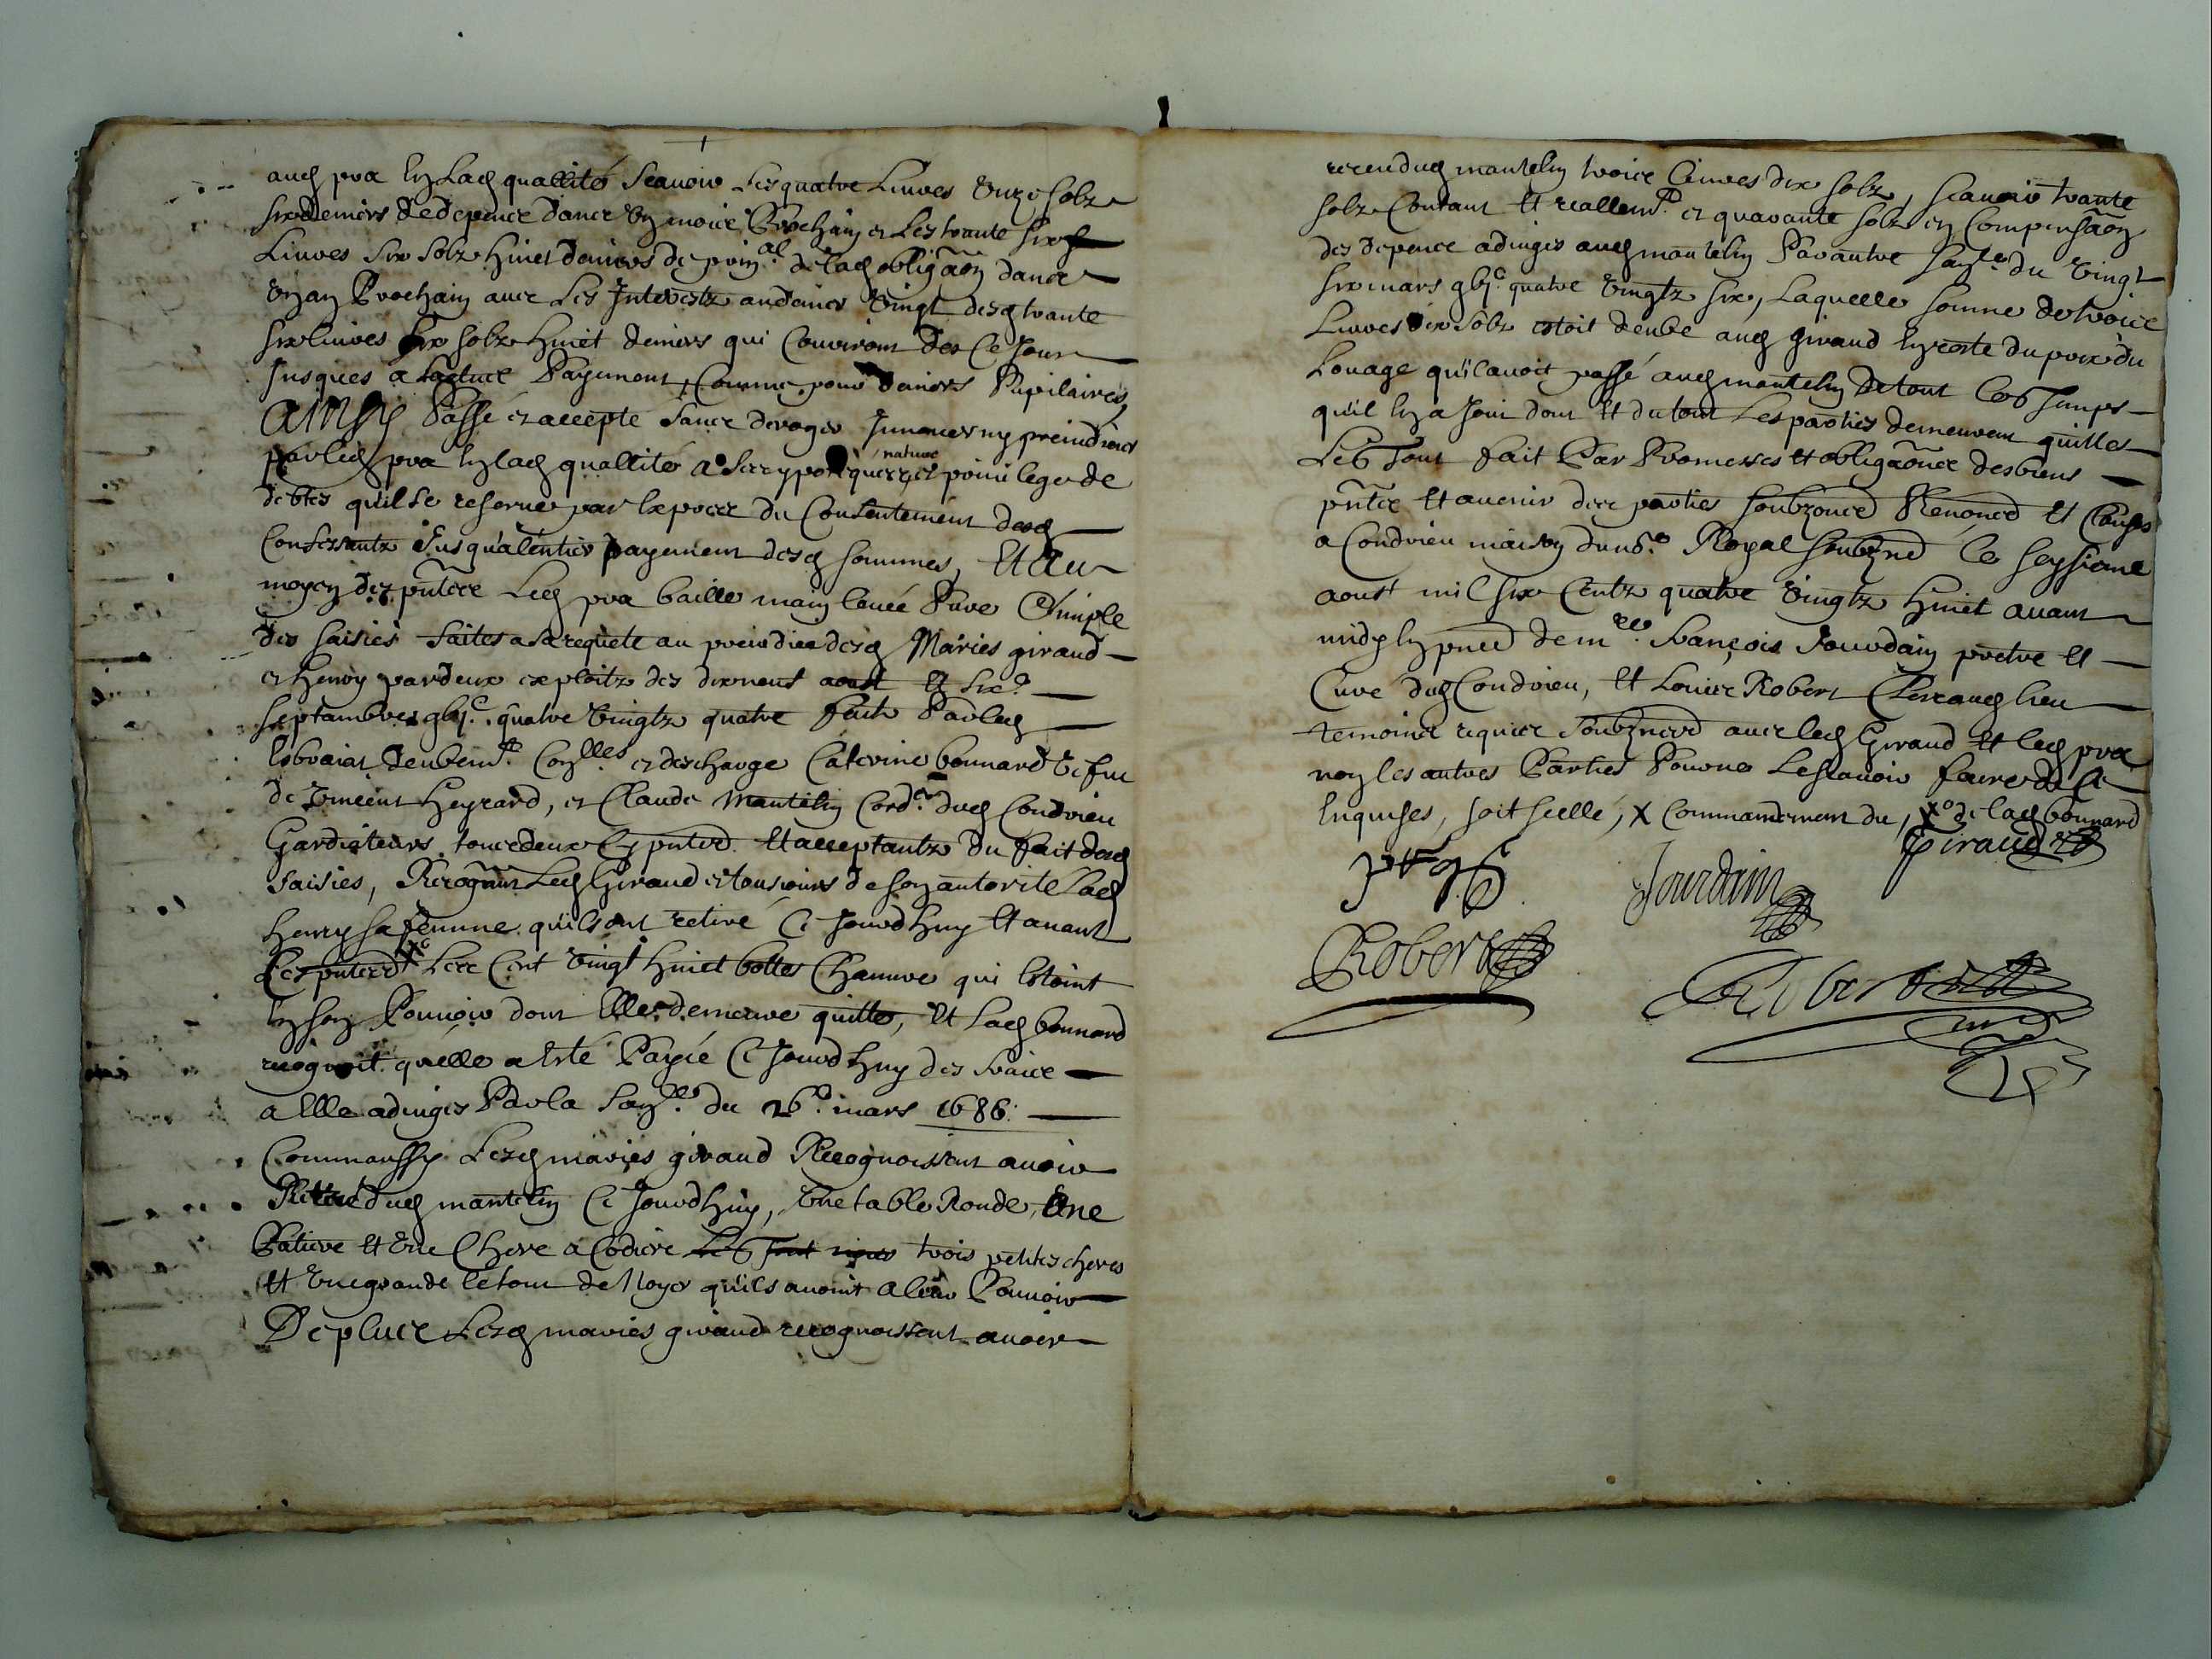 aud pra en lad quallité scauoir les quatre liures unze solz
six deniers de depence dans un mois prochain et les trante six
liures six solz huict deniers de prin.al de lad obligãon dans
un an prochain auec les interestz au denier vingt desd trante
six liures six solz huict deniers qui couriront des ce jour
jusques a lactuel payement, comme pour deniers pupilaires,
Ainsy passé et accepté sans deroger innouer ny preiudicier
par led pra en lad quallité a nature et priuilege de
debtes quil se reserue par expres du consentement desd
confessantz jusqu'a l'entier payement desd sommes, et au
moyen des pñtes led pra baille main leuée pure et simple
des saisies faites a sa requete au preiudice desd mariés giraud
et henry par deux exploitz des dixneuf aoust et six.e
septambres gbjc quatre vingtz quatre faits par led
deubem.t con.lles et descharge Caterine bonnard vefue
de vincent heyrard, et Claude Mantelin cord.er dud Condrieu
Gardiateurs tous deux cy pñtz et acceptantz du fait desd
saisies, Recognu led Giraud et tousiours de son autorite lad
henry sa femme quils ont retiré ce jourdhuy et auant
ces pñtes xo les cent vingt huict bottes chanure qui estoint
en son pouuoir dont elle demeure quitte, et lad bonnard
recognoit quelle a esté payée ce jourdhuy des fraix
a elle adiugés par la san.ce du 26.e mars 1686.
Comm'aussy lesd mariés giraud recognoissent auoir
Retiré dud mantelin ce jourdhuy, une table ronde, une
et une chere a trois petites cheres
et une grande le tout de noyer quils auoint a leur pouuoir
De plus lesd mariés giraud recognoissent auoir
receu dud mantelin trois liures dix solz, scauoir trante
solz contant et reallem.t et quarante solz en compensãon
des depence adiuges aud mantelin par autre san.ce du vingt
six mars gbjc quatre vingtz six, laquelle somme de trois
liures dix solz estoit deube aud giraud en reste du prix du
louage qu'il auoit passé aud mantelin de tout le temps
quil en a joui dont et du tout les parties demeurent quittes
Le tout fait par promesses et obligãons des biens
pñtz et auenir des parties soubz renonc
a Condrieu maison du no.re Royal soubzné le seysieme
aoust mil six centz quatre vingtz huict auant
midy en pñce de m.re françois Jourdain pretre et
curé dud Condrieu, et Louis Robert clerc aud lieu
temoins requis soubznés auec led Giraud et led pra
non les autres parties pour ne le scauoir faire de ce
enquises, soit scellé, x commancement du, xo de lad bonnard
Giraud
Jourdain
Robert